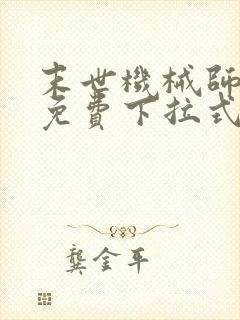 末世機械師
免費下拉式
龔金平